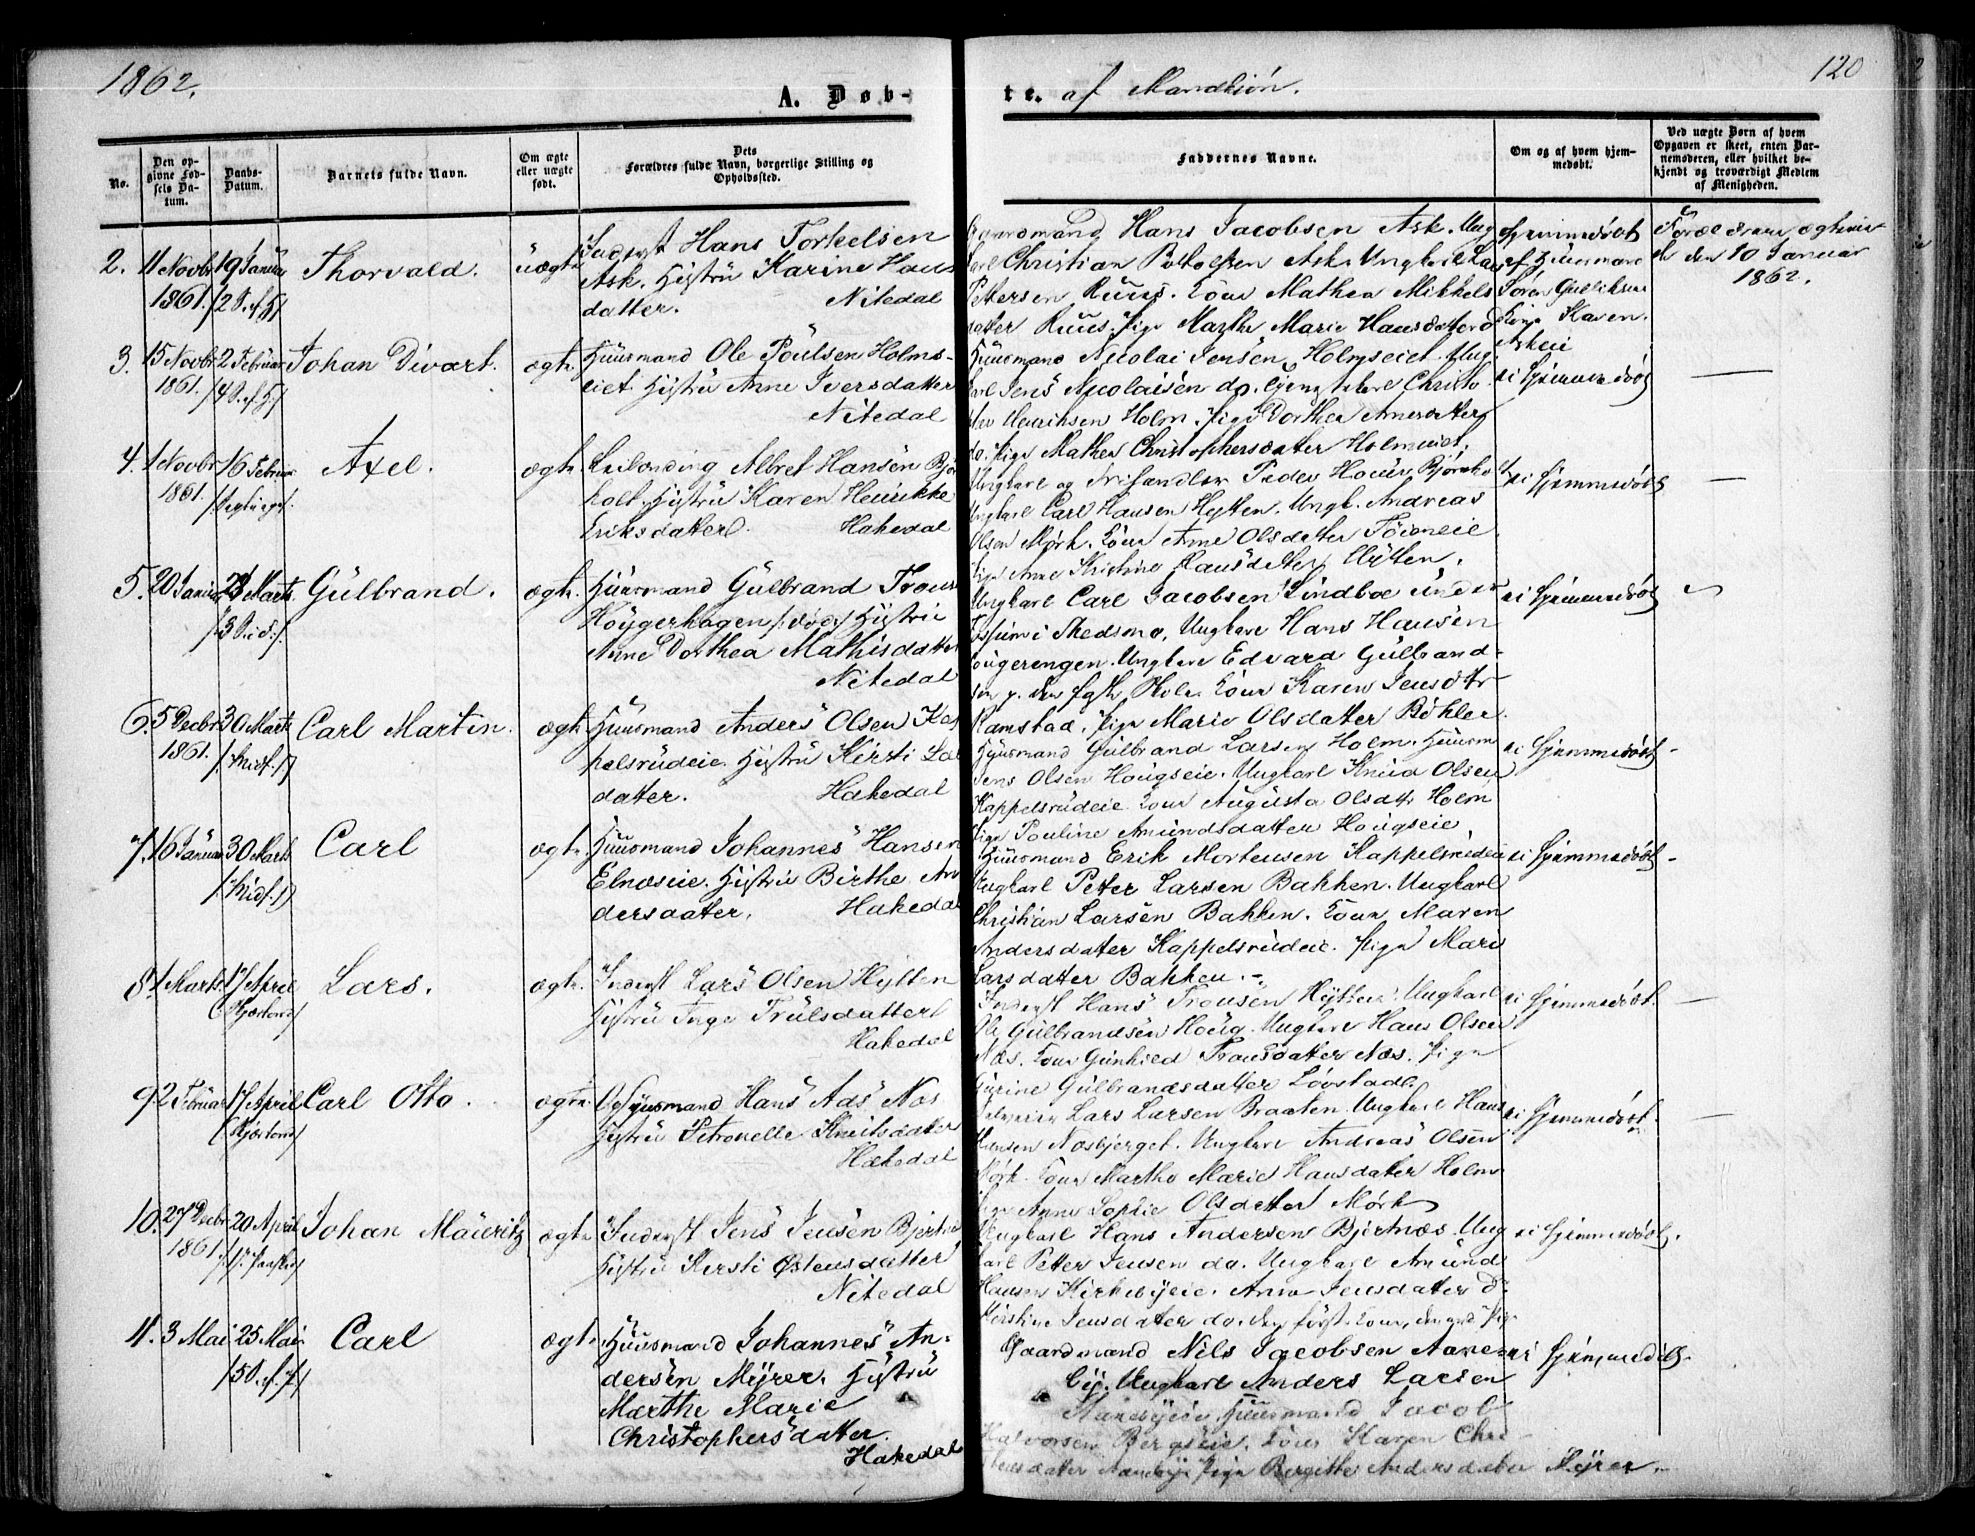 1862.
A. Døb-
te. af Mandkjøn.
120
No.
Den op-
givne Fød-
sels Da-
tum.
Daabs-
Datum.
Barnets fulde Navn.
Om ægte
eller uægte
født.
Dets
Forældres fulde Navn, borgerlige Stilling og
Opholdssted.
Faddernes Navne.
Om og af hvem hjem-
medøbt.
Ved uægte Børn af hvem
Opgaven er skeet, enten Bar-
nemoderen, eller hvilket be-
kjendt og troværdigt Medlem
af Menigheden.
2. 11 Novbr 19 Januar Thorvald. uægte Inderst Hans Torkelsen
1861. Ask. Hustru Karine Hans
datter. Nitedal
Gaardmand Hans Jacobsen Ask. Ung
karl Christian Ask. Ungkarl Lars
Pettersen Ruus. Kone Mathea Mikkels
datter Ruus. Pige Marthe Marie Hansdatter
hjemmedøbt
af Huusmand
Søren Gulliksens
Kone Karen
Askeie
Forældrene
den 10 Januar
1862.
3. 15 Novbr 2 Februar Johan Divart. ægte Huusmand Ole Poulsen Holms-
1861. eiet. Hustru Anne Iversdatter
Nitedal
Huusmand Nicolai Jensen Holmseiet. Ung
karl Jens Nicolaisen do. Christo
Henriksen Holm. Pige Dorthea Arnesdatter
do. Pige Mathea Christophersdatter Holmseiet.
ei hjemmedøbt
4. 1 Novbr 16 Februar Axel. ægte. Albret Hansen Bjør
1861. holt. Hustru Karen Henrikke
Eriksdatter. Hakedal
Ungkarl og Peder
Ungkarl Carl Hansen Hytten. Ungk. Andreas
Olsen Mørk. Kone Anne Olsdatter
Pige Anne Kristine Hansdatter Hytten.
ei hjemmedøbt
5. 20 Januar 23 Marts Gulbrand. ægte. Huusmand Gulbrand
Høygerhagen /:død:/ Hustru
Anne Dorthea Mathisdatter
Nitedal
Ungkarl Carl Jacobsen Lindboe under
i Skedsmo. Ungkarl Hans Hansen
Ungkarl Edvard Gulbrand-
Holm Kone Karen Jensdtr
Ramstad. Pige Marie Olsdatter Bøhler
ei hjemmedøbt
6. 5 Decbr 30 Marts Carl Martin. ægte Huusmand Anders Olsen Kap
1861. /:Midf.:/ pelsrudeie. Hustru Kirsti
datter. Hakedal
Huusmand Gulbrand Larsen Holm. Huusm
Jens Olsen Hougseie. Ungkarl Knud Olsen
Kappelsrudeie Kone Augusta Olsdtr Holm
Pige Pouline Amundsdatter Hougseie
ei hjemmedøbt
7. 16 Januar 30 Marts Carl ægte. Huusmand Johannes Hansen
/:Midf.:/ Elnæseie. Hustru Birthe An
dersdatter. Hakedal
Huusmand Erik Mortensen Kappelsrudeie
Ungkarl Peter Larsen Bakken. Ungkarl
Christian Larsen Bakken. Kone Maren
Andersdatter Kappelsrudeie. Pige Mari
Larsdatter Bakken.
ei hjemmedøbt
8. 1 Marts 17 April Lars. ægte. Inderst Lars Olsen Hytten
Hustru Inge Trulsdatter
Hakedal
Inderst Hans Hytten. Ungkarl
Ole Gulbrandsen Houg. Ungkarl Hans Olsen
Næs. Kone Gunhild Næs. Pige
Gurine Gulbrandsdatter Løvstad.
ei hjemmedøbt.
9. 2 Februar 17 April Carl Otto. ægte Huusmand Hans
Hustru Petronelle Knutsdatter
Hakedal
Lars Larsen Braaten. Ungkarl Hans
Hansen Ungkarl Andreas Olsen
Mørk. Kone Marthe Marie Hansdatter Holm
Pige Anne Sophie Olsdatter Mørk
ei hjemmedøbt.
10. 27 Decbr 20 April Johan Mauritz ægte Inderst Jens Jensen Bjertnæs
1861. Hustru Kersti Østensdatter
Nitedal
Ungkarl Hans Andersen Bjertnæs. Ung
karl Petter Jensen do. Ungkarl Amund
Hansen Kirkebyeie. Anne Jensdatter do
Kirstine Jensdatter do. den først. Kone, den and. Pige
ei hjemmedøbt.
11. 3 Mai 25 Mai Carl ægte. Huusmand Johannes An-
dersen Myrer. Hustru
Marthe Marie
Christophersdatter.
Hakedal
Gaardmand Nils Jacobsen Aane
by. Ungkarl Anders Larsen
Huusmand Jacob
Halvorsen Bergseie. Kone Karen Chri-
stensdatter Aaneby. Pige Birgitte Andersdatter Myrer.
ei hjemmedøbt